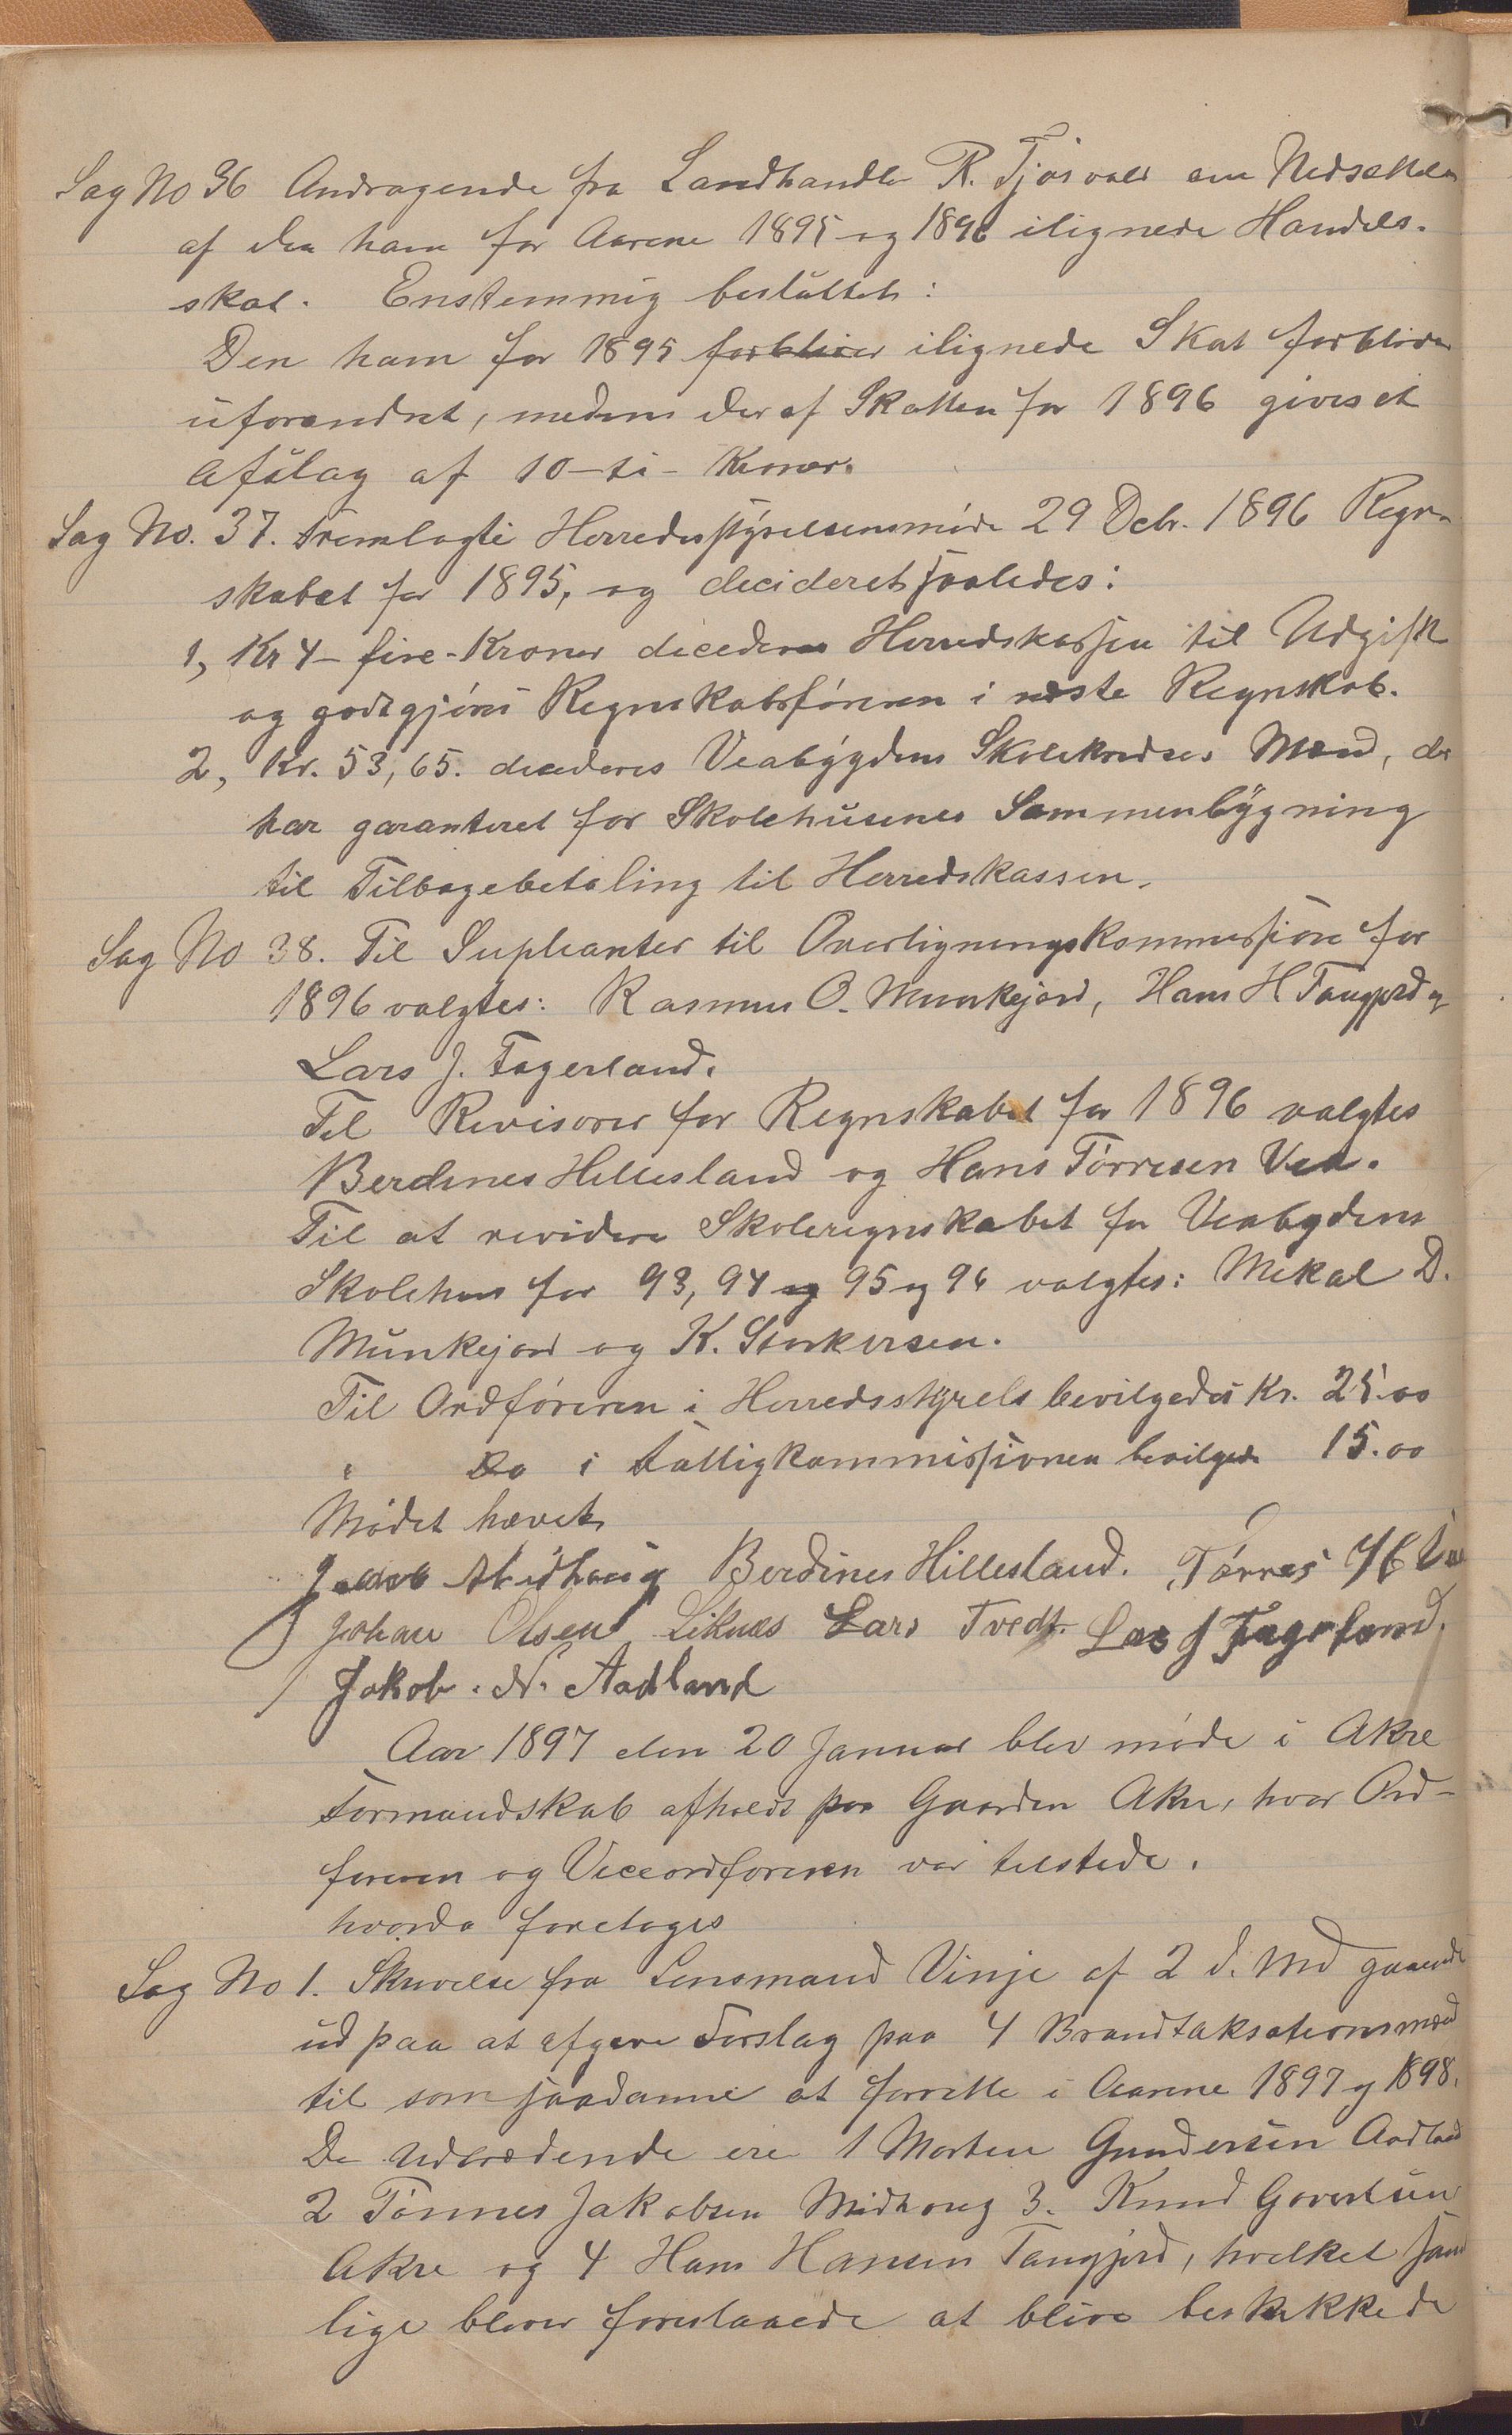 Sag No 36 Andragende fra Landhandler R. Tjøsvold om Nedsættelse
af den ham for Aarene 1895 og 1896 ilignede Handels-
skat. Enstemmig besluttet:
Den ham for 1895 forbliver ilignede Skat forbliver
uforandret, medens der af Skatten for 1896 gives et
Afslag af 10-ti- Kroner.
Sag No. 37. Fremlagte Herredsstyrelsensmøde 29 Debr. 1896 Regn-
skabet for 1895, og decideret saaledes:
1, Kr 4- fire-Kroner decideres Herredskassen til Udgift
og godtgjøres Regnskabsføreren i næste Regnskab.
2, Kr. 53,65. decideres Veabygdens Skolekredses Mænd, der
har garanteret for Skolehusenes Sammenbygning
til Tilbagebetaling til Herredskassen.
Sag No 38. Til Supleanter til Overligningskommission for
1896 valgtes: Rasmus O. Munkejord, Hans H Tangjerd og
Lars J. Fagerland.
Til Revisorer for Regnskabet for 1896 valgtes
Berdines Hillesland og Hans Tørresen Vea.
Til at revidere Skoleregnskabet for Veabygdens
Skolehus for 93, 94 og 95 og 96 valgtes: Mikal D.
Munkejord og K. Storkersen.
Til Ordføreren i Herredsstyrels bevilgedes Kr. 25.00
" Do i Fattigkommissionen bevilgede 15.00
Mødet hævet
Jakob Midhaug Berdines Hillesland. Tørres H Vea
Johan Olsen Liknes Lars Tvedt Lars J Fagerland.
Jakob. N. Aadland
Aar 1897 den 20 Januar blev møde i Akre
Formandskab afholdt paa Gaarden Akre, hvor Ord-
føreren og Viceordføreren var tilstede.
hvorda foretoges
Sag No 1. Skrivelse fra Lensmand Vinje af 2 d. Md gaaende
ud paa at afgive Forslag paa 4 Brandtaksationsmænd
til som saadanne at forrette i Aarene 1897 og 1898.
De Udtrædende ere 1 Morten Gundersen Aadland
2 Tønnes Jakobsen Midhoug 3. Knud Govertsen
Akre og 4 Hans Hansen Tangjerd, hvilket sam
lige bliver foreslaaede at blive beskikkede